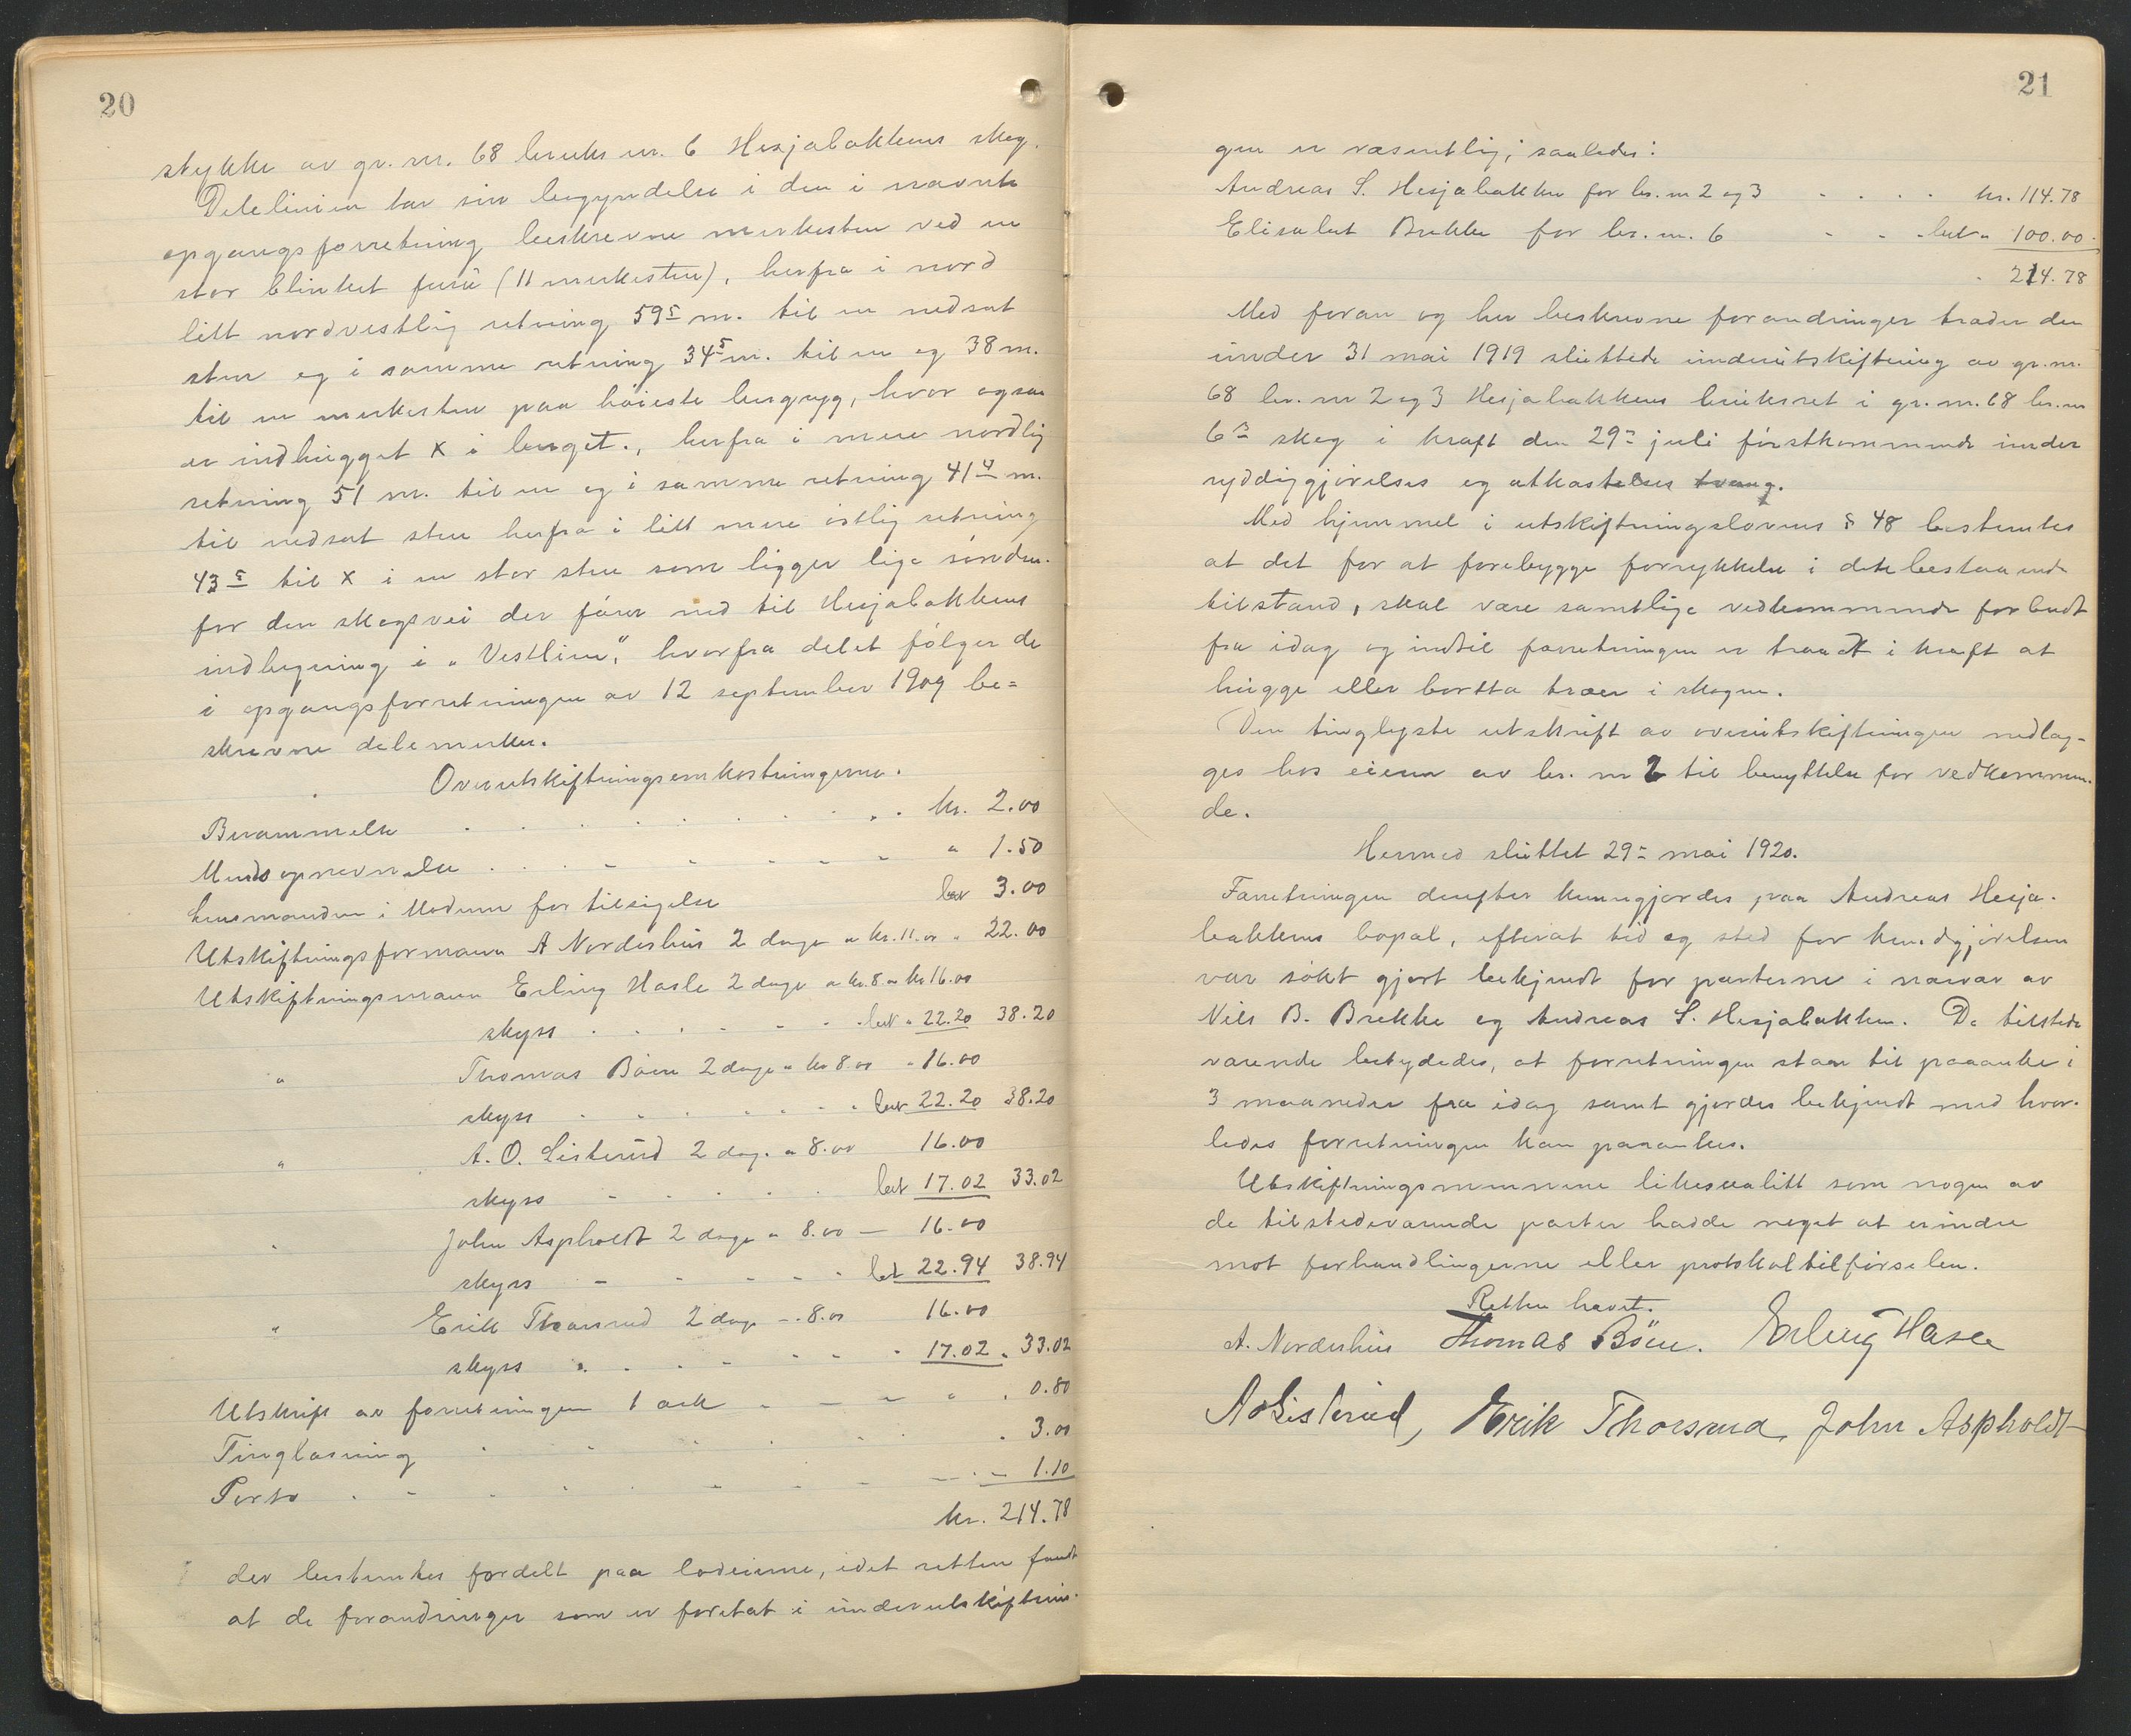 20
stykke av gr. nr. 68 bruks nr. 6 Hesjabakkens skog.
Delelinien tar sin begyndelse i den i nævnte
opgangsforretning beskrevne merkesten ved en
stor blinket furu (11 merkesten), herfra i nord
litt nordvestlig retning 59⁵ m. til en nedsat
sten og i samme retning 34⁵ m. til en og 38 m.
til en merkesten paa høieste bergryg, hvor ogsaa
er indhugget x i berget., herfra i mere nordlig
retning 51 m. til en og i samme retning 41⁴ m.
til nedsat sten herfra i litt mere østlig retning
43⁵ til x i en stor sten som ligger lige sønden-
for den skogsvei der fører ned til Hesjabakkens
indhegning i "Vestlien", hvorfra delet følger de
i opgangsforretningen av 12 september 1909 be=
skrevne delemerker.
Overutskiftningsomkostningerne.
Berammelse . . . . . . kr. 2.00
Mends opnevnelse . . . . . " 1.50
Lensmanden i Modum for tilsigelse bet 3.00
Utskiftningsformann A Norderhus 2 dage a kr. 11.00 " 22.00
Utskiftningsmann Erling Hasle 2 dage a kr. 8 = kr 16.00
skyss . . . . . bet " 22.20 38.20
" Thomas Bøen 2 dage a kr 8.00 " 16.00
skyss . . . . . bet 22.20 38.20
" A. O. Listerud 2 dag. a 8.00 16.00
skyss . . . . . bet 17.02 33.02
" John Aspholdt 2 dage a 8.00 — 16.00
skyss - - - - - bet 22.94 38.94
" Erik Thorsrud 2 dage - . 8.00 16.00
skyss . . . . . " 17.02 " 33.02
Utskrift av forretningen 1 ark - - - " . 0.80
Tinglæsning . . . . . . 3.00
Porto . . . . . . - 1.10
kr. 214.78
der bestemtes fordelt paa lodeierne, idet retten fandt
at de forandringer som er foretat i underutskiftnin-
21
gen er væsentlig, saaledes:
Andreas S. Hesjabakken for br. nr 2 og 3 . . . . kr. 114.78
Elisabet Brekke for br. nr. 6 - - - bet " 100.00
214.78
Med foran og her beskrevne forandringer træder den
under 31 mai 1919 sluttede underutskiftning av gr. nr.
68 br. nr 2 og 3 Hesjabakkens bruksret i gr. nr. 68 br. nr
6s skog i kraft den 29- juli førstkommende under
ryddiggjørelses og utkastelses tvang.
Med hjemmel i utskiftningslovens § 48 bestemtes
at det for at forebygge forrykkelse i dete bestaaende
tilstand, skal være samtlige vedkommende forbudt
fra idag og indtil forretningen er traadt i kraft at
hugge eller bortta træer i skogen.
Den tinglyste utskrift av overutskiftningen nedlæg-
ges hos eieren av br. nr 2 til benyttelse for vedkommen-
de.
Hermed sluttet 29- mai 1920.
Forretningen derefter kunngjordes paa Andreas Hesja-
bakkens bopæl, efterat tid og sted for kundgjørelsen
var søkt gjort bekjendt for parterne i nærvær av
Nils B. Brekke og Andreas S. Hesjabakken. De tilstede
værende betydedes, at forretningen staar til paaanke i
3 maaneder fra idag samt gjordes bekjendt med hvor-
ledes forretningen kan paaankes.
Utskiftningsmennene likesaalitt som nogen av
de tilstedeværende parter hadde noget at erindre
mot forhandlingerne eller protokoltilførselen.
Retten hævet.
A. Norderhus Thomas Böen. Erling Hasle
A O Listerud, Erik Thorsrud, John Aspholdt